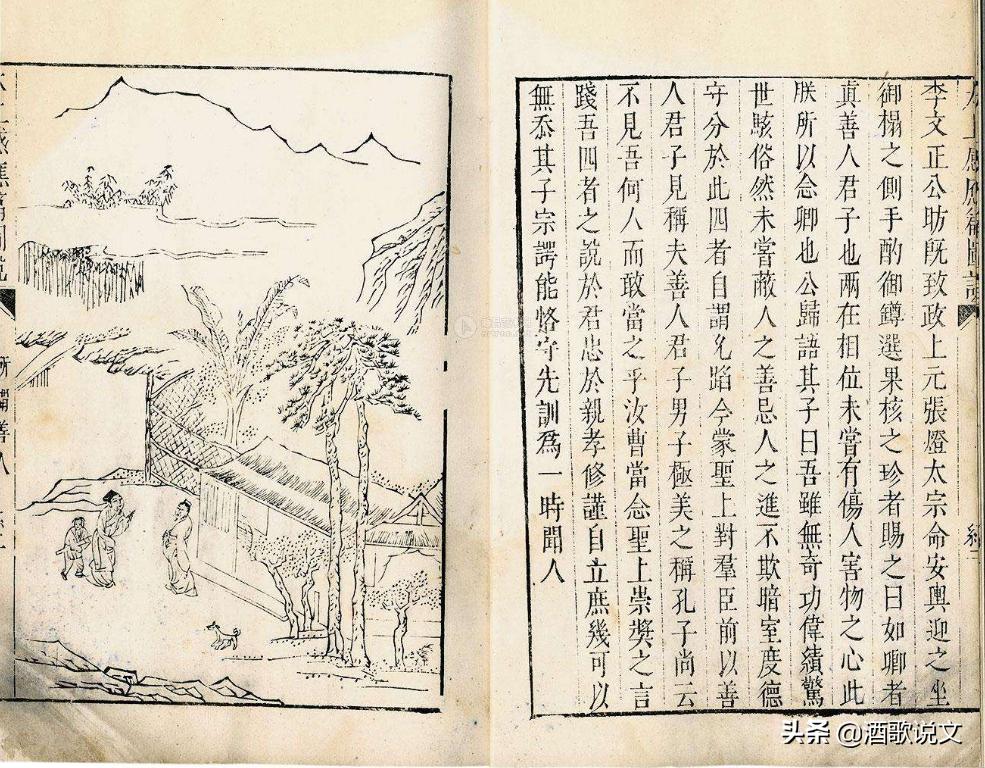 太上感應篇圖說
李文正公昉旣致政上元張燈太宗命安輿迎之坐
御榻之側手酌御罇選果核之珍者賜之曰如卿者
眞善人君子也两在相位未嘗有傷人害物之心此
朕所以念卿也公歸語其子曰吾雖無奇功偉績驚
世駭俗然未嘗蔽人之善忌人之進不欺暗室度德
守分於此四者自謂允蹈今蒙聖上對羣臣前以善
人君子見稱夫善人君子男子極美之稱孔子尚云
不見吾何人而敢當之乎汝曹當念聖上崇奬之言
踐吾四者之說於君忠於親孝修謹自立庶幾可以
無忝其子宗諤能恪守先訓爲一時聞人
太上感應篇圖說
所謂善人
头条 @酒歌说文